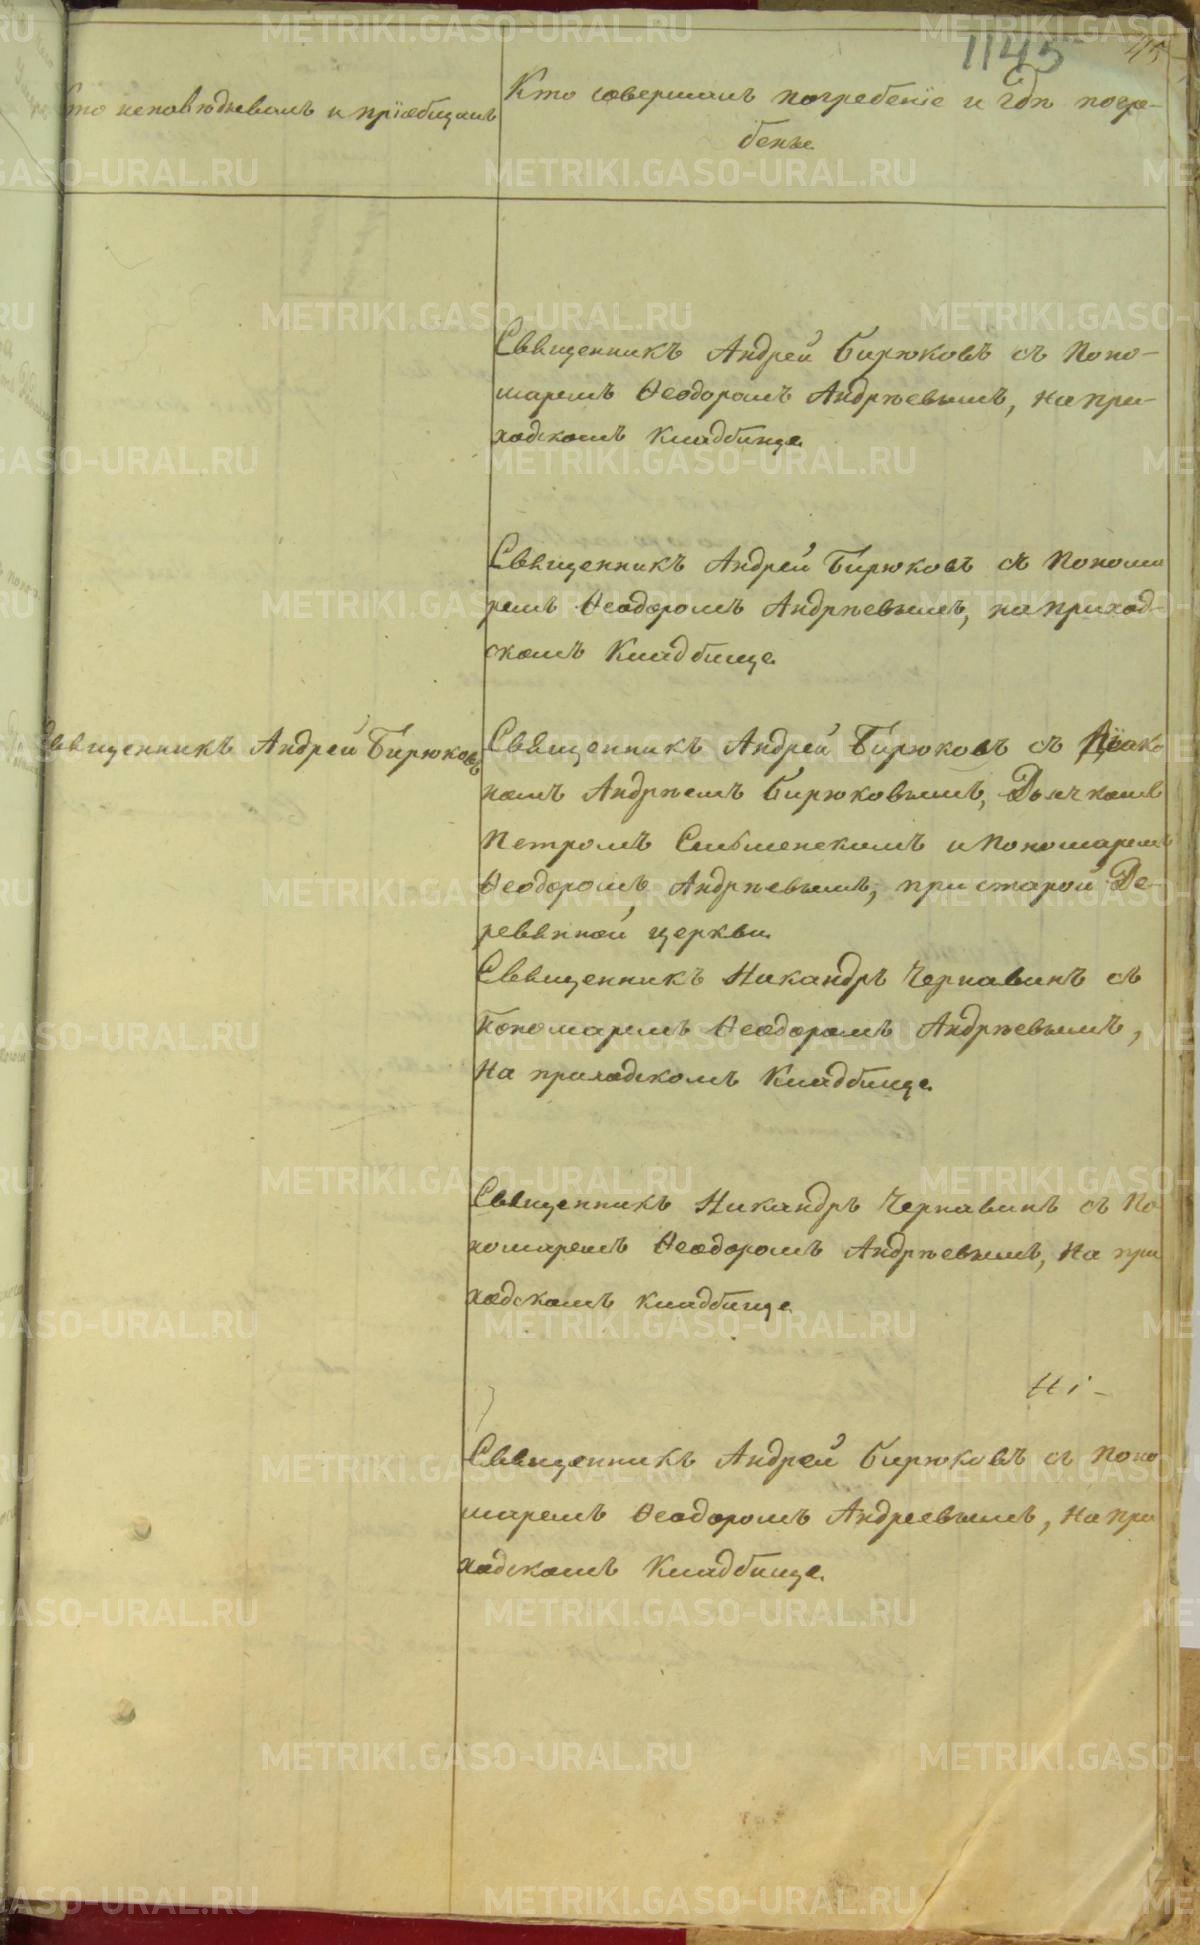 1145
Кто исповѣдывалъ и пріобщалъ
Кто совершалъ погребеніе и гдѣ погре-
бены.
Священникъ Андрей Бирюковъ съ Поно-
маремъ Ѳеодоромъ Андрѣевымъ, на при-
ходскомъ Кладбище.
Священникъ Андрей Бирюковъ съ Понома
ремъ Ѳеодоромъ Андрѣевымъ, на приход-
скомъ Кладбище.
Священникъ Андрей Бирюковъ
Священникъ Андрей Бирюковъ съ Діако
номъ Андрѣемъ Бирюковымъ, Дьячкомъ
Петромъ и Пономаремъ
Ѳеодоромъ Андрѣевымъ, при старой Де-
ревянной церкви.
Священникъ Никандръ Чернавинъ съ
Пономаремъ Ѳеодоромъ Андрѣевымъ,
на приходскомъ Кладбище.
Священникъ Никандръ Чернавинъ съ По
номаремъ Ѳеодоромъ Андрѣевымъ, на при
ходскомъ кладбище.
Священникъ Андрей Бирюковъ съ Поно
маремъ Ѳеодоромъ Андреевымъ, на при
ходскомъ Кладбище.
METRIKI.GASO-URAL.RU